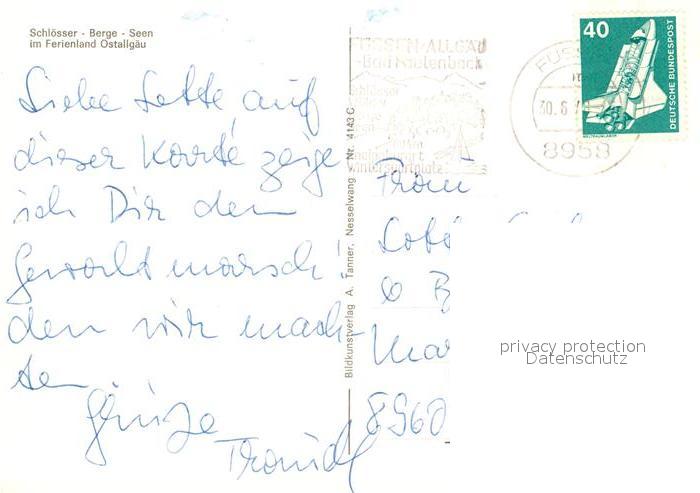 Schlösser - Berge - Seen
im Ferienland Ostallgäu
Liebe Lotte, auf
dieser Karte zeige
ich Dir den
Gewaltmarsch!
den wir mach-
ten
Grüße
Traudl
Bildkunstverlag A. Tanner, Nesselwang Nr. 4143 C
FÜSSEN-ALLGÄU
-Bad Faulenbach
Wintersportplatz
FÜSS
30. 6
8958
40
DEUTSCHE BUNDESPOST
WELTRAUMLABOR
Frau
8960
privacy protection
Datenschutz